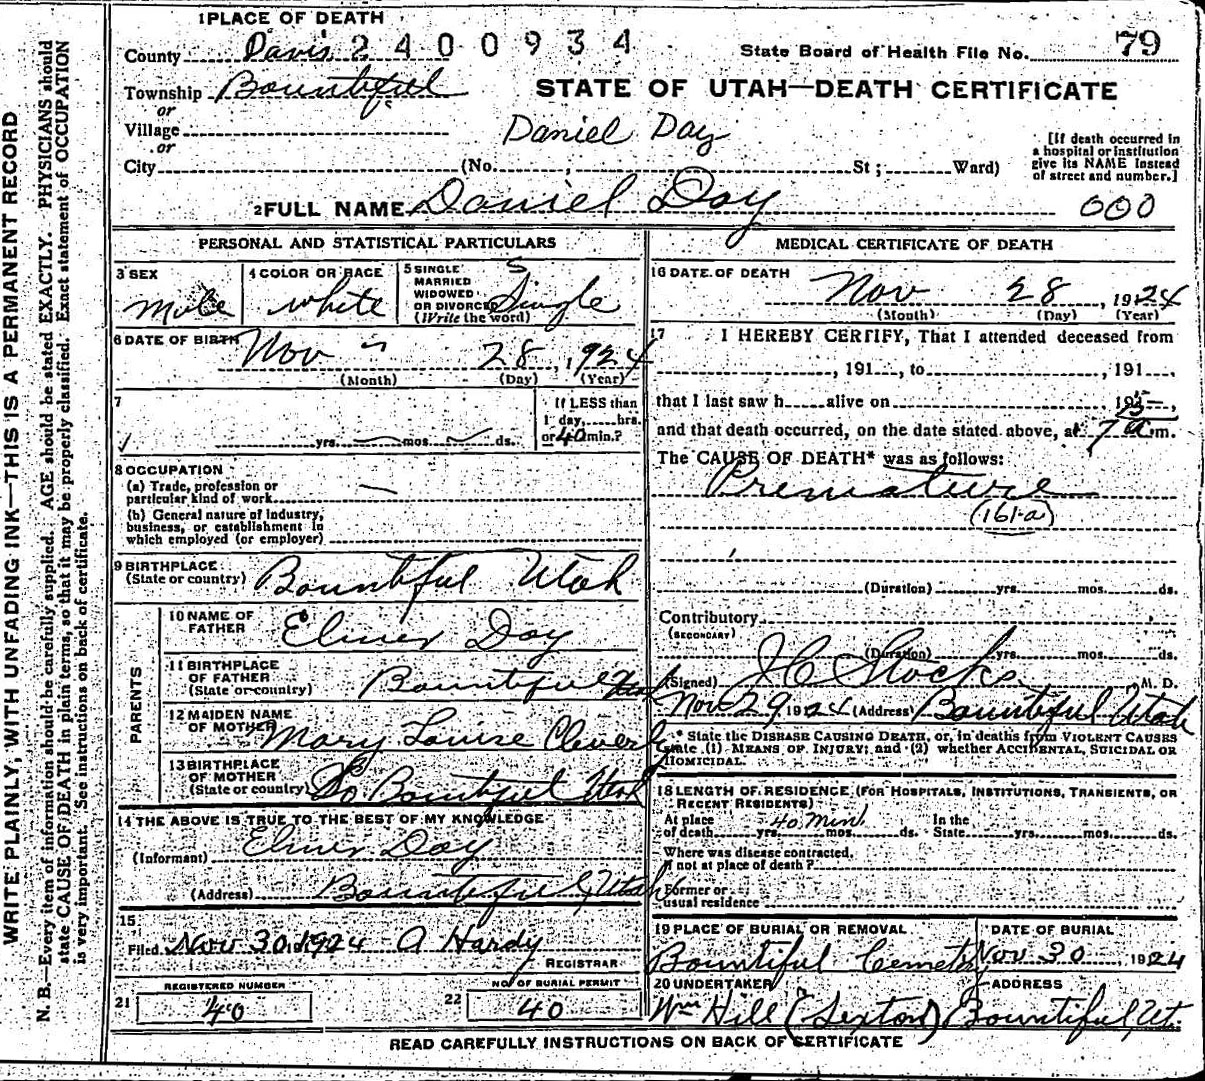 WRITE PLAINLY, WITH UNFADING INK—THIS IS A PERMANENT RECORD
N. B.—Every item of information should be carefully supplied. AGE should be stated EXACTLY. PHYSICIANS should
state CAUSE OF DEATH in plain terms, so that it may be properly classified. Exact statement of OCCUPATION
is very important. See instructions on back of certificate.
1 PLACE OF DEATH
County Davis 2400934
State Board of Health File No. 79
Township Bountiful
STATE OF UTAH—DEATH CERTIFICATE
or
Village
Daniel Day
or
City (No. , St; Ward)
[If death occurred in
a hospital or institution
give its NAME instead
of street and number.]
2 FULL NAME Daniel Day
000
PERSONAL AND STATISTICAL PARTICULARS
3 SEX
Male
4 COLOR OR RACE
white
5 SINGLE
MARRIED
WIDOWED
OR DIVORCED
(Write the word)
S
Single
6 DATE OF BIRTH
Nov 28, 1924
(Month) (Day) (Year)
7
yrs. mos. ds.
If LESS than
1 day, hrs.
or 40 min.?
8 OCCUPATION
(a) Trade, profession or
particular kind of work —
(b) General nature of industry,
business, or establishment in
which employed (or employer)
9 BIRTHPLACE
(State or country)
Bountiful Utah
PARENTS
10 NAME OF
FATHER
Elmer Day
11 BIRTHPLACE
OF FATHER
(State or country)
Bountiful Utah
12 MAIDEN NAME
OF MOTHER
Mary Louise Cleverly
13 BIRTHPLACE
OF MOTHER
(State or country)
So Bountiful Utah
14 THE ABOVE IS TRUE TO THE BEST OF MY KNOWLEDGE
(Informant) Elmer Day
(Address) Bountiful, Utah
15
Filed Nov 30, 1924 A Hardy
REGISTRAR
REGISTERED NUMBER
21 40
NO. OF BURIAL PERMIT
22 40
MEDICAL CERTIFICATE OF DEATH
16 DATE OF DEATH
Nov 28, 1924
(Month) (Day) (Year)
17 I HEREBY CERTIFY, That I attended deceased from
, 191 , to , 191 .
that I last saw h alive on , 191 ,
and that death occurred, on the date stated above, at 7 a. m.
The CAUSE OF DEATH* was as follows:
Premature
(161-a)
(Duration) yrs. mos. ds.
Contributory
(SECONDARY)
(Duration) yrs. mos. ds.
(Signed) J C Stocks M. D.
Nov 29 1924 (Address) Bountiful Utah
* State the DISEASE CAUSING DEATH, or, in deaths from VIOLENT CAUSES
state (1) MEANS OF INJURY; and (2) whether ACCIDENTAL, SUICIDAL OR
HOMICIDAL.
18 LENGTH OF RESIDENCE (FOR HOSPITALS, INSTITUTIONS, TRANSIENTS, OR
RECENT RESIDENTS)
At place
of death yrs. 40 Min. mos. ds.
In the
State yrs. mos. ds.
Where was disease contracted,
if not at place of death?
Former or
usual residence
19 PLACE OF BURIAL OR REMOVAL
Bountiful Cemetery
DATE OF BURIAL
Nov 30, 1924
20 UNDERTAKER
Wm Hill (Sexton)
ADDRESS
Bountiful, Ut.
READ CAREFULLY INSTRUCTIONS ON BACK OF CERTIFICATE